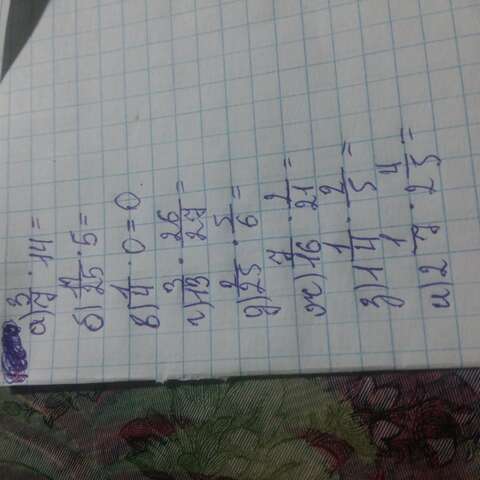 а) 3/7 · 14 =
б) 12/25 · 5 =
в) 1/4 · 0 = 0
г) 3/13 · 26/27 =
д) 2/25 · 5/6 =
ж) 7/16 · 2/21 =
з) 1 1/4 · 2/5 =
и) 2 1/7 · 2 4/5 =